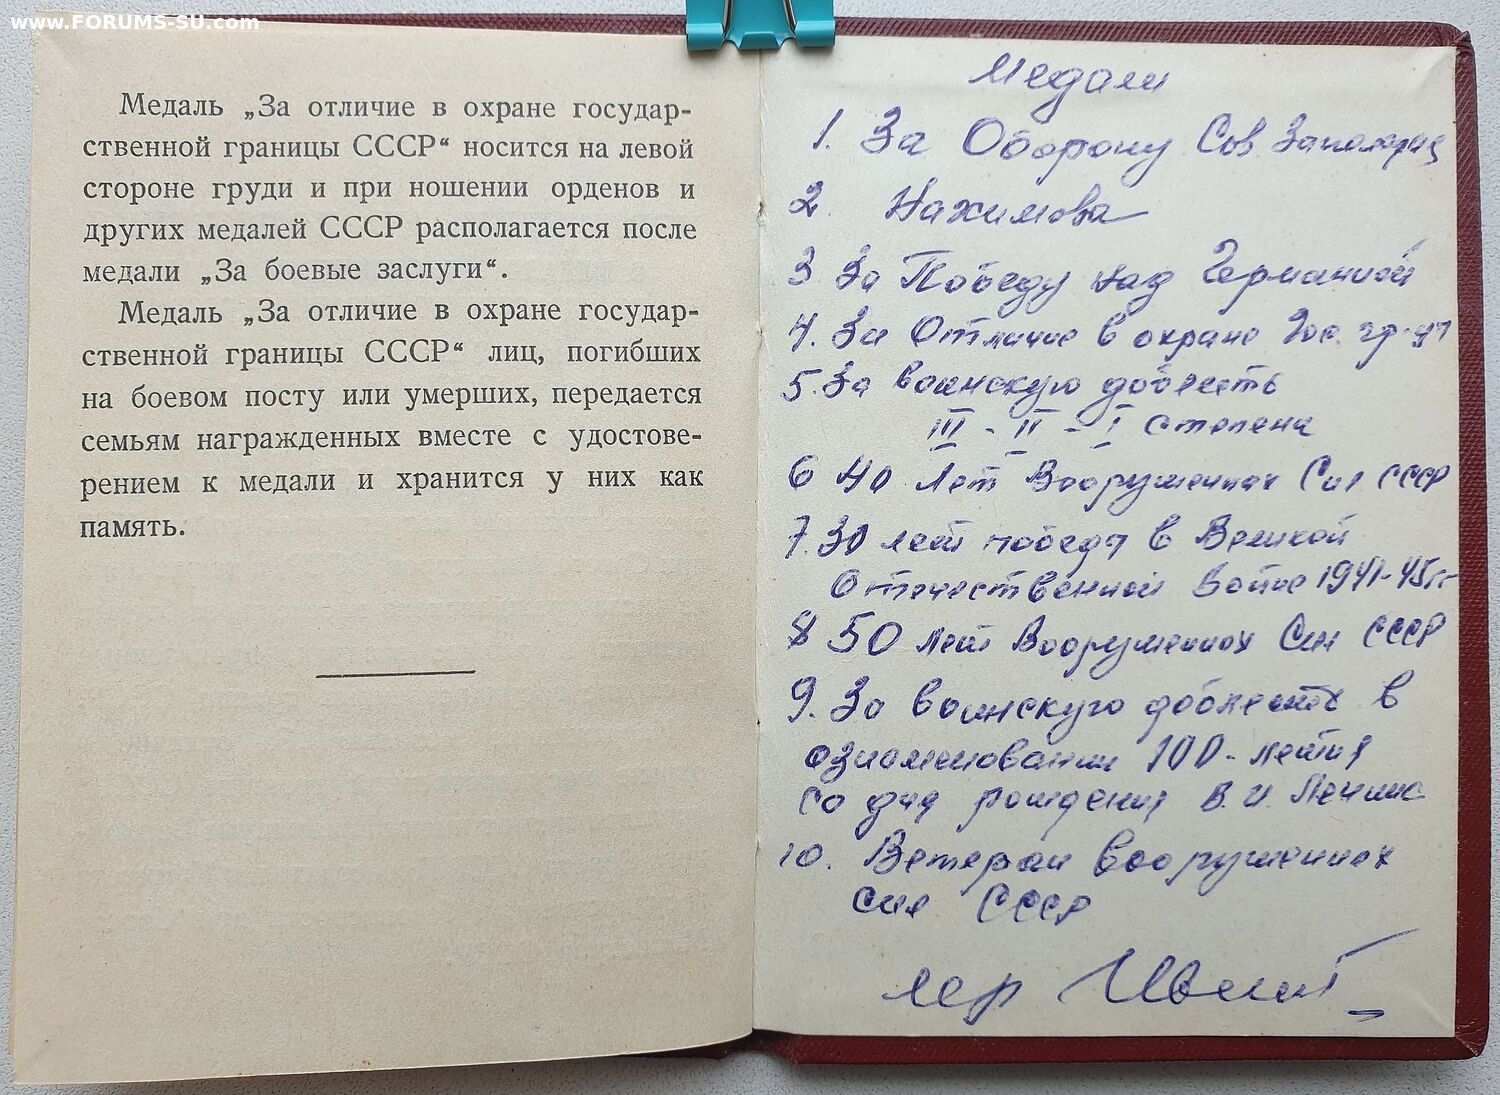 www.FORUMS-SU.com
Медаль „За отличие в охране государ-
ственной границы СССР“ носится на левой
стороне груди и при ношении орденов и
других медалей СССР располагается после
медали „За боевые заслуги“.
Медаль „За отличие в охране государ-
ственной границы СССР“ лиц, погибших
на боевом посту или умерших, передается
семьям награжденных вместе с удостове-
рением к медали и хранится у них как
память.
Медали
1. За Оборону Сов Заполярия
2. Нахимова
3 За Победу над Германией
4. За Отличие в охране Гос. гр-цы
5. За воинскую доблесть
III - II - I степени
6 40 лет Вооруженных Сил СССР
7. 30 лет победы в Великой
Отечественной Войне 1941-45гг
8 50 лет Вооруженных Сил СССР
9. За воинскую доблесть в
ознаменовании 100-летия
со дня рождения В. И. Ленина
10. Ветеран вооруженных
сил СССР